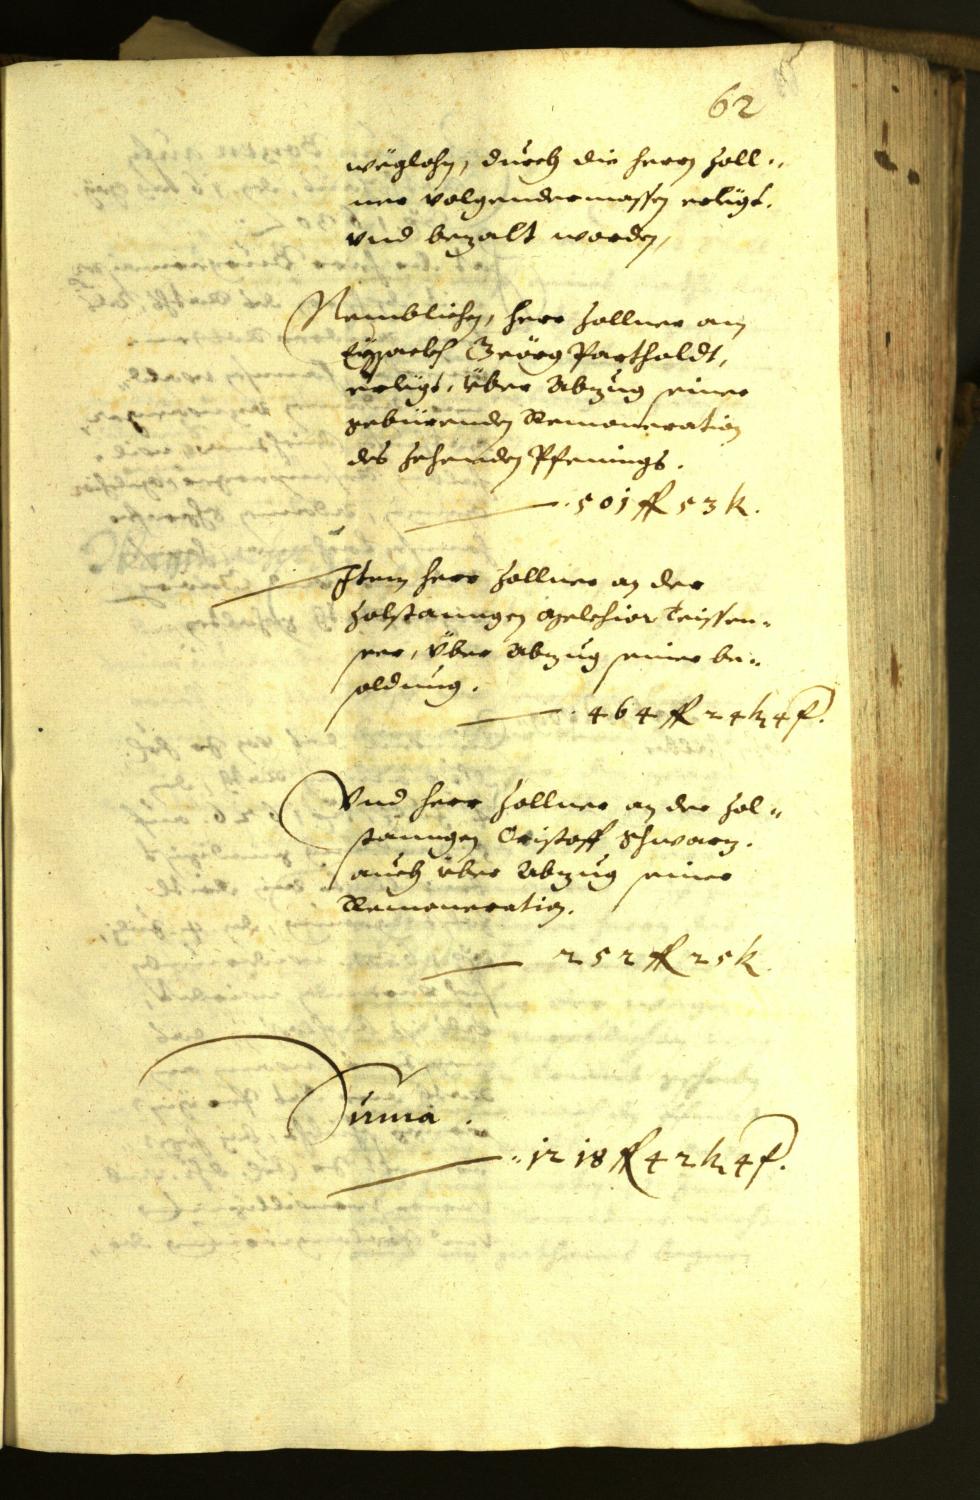 62
weglohn, durch die herrn Zoll„
ner volgendermassen erligt.
vnd bezalt worden,
Nemblichen, herr Zollner am
Eysackh Geörg Partholdt,
erligt, über Abzug seiner
gebürenden Remoneration
des zehenden Pfenings.
501 ff 53 k.
Item herr Zollner an der
Zolstanngen Melchior Teissen„
seer, über Abzug seiner be„
soldung.
464 ff 24 k, 4 f.
Vnd herr Zollner an der Zol„
stanngen Cristoff Schwarz.
auch über Abzug seiner
Remoneration.
252 ff 25 k
Suma.
1218 ff 42 k, 4 f.